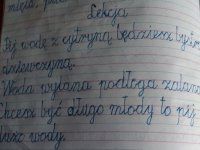 mięsa,
Lekcja
Pij wodę z cytryną będziesz bystra
dziewczyna.
Woda wylana podłoga zalana
Chcesz być długo młody to pij
dużo wody.